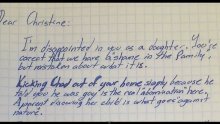 Dear Christine:
I'm disappointed in you as a daughter. You're
correct that we have a shame in the family,
but mistaken about what it is.
Kicking Chad out of your home simply because he
told you he was gay is the real abomination here.
A parent disowning her child is what goes against
nature.